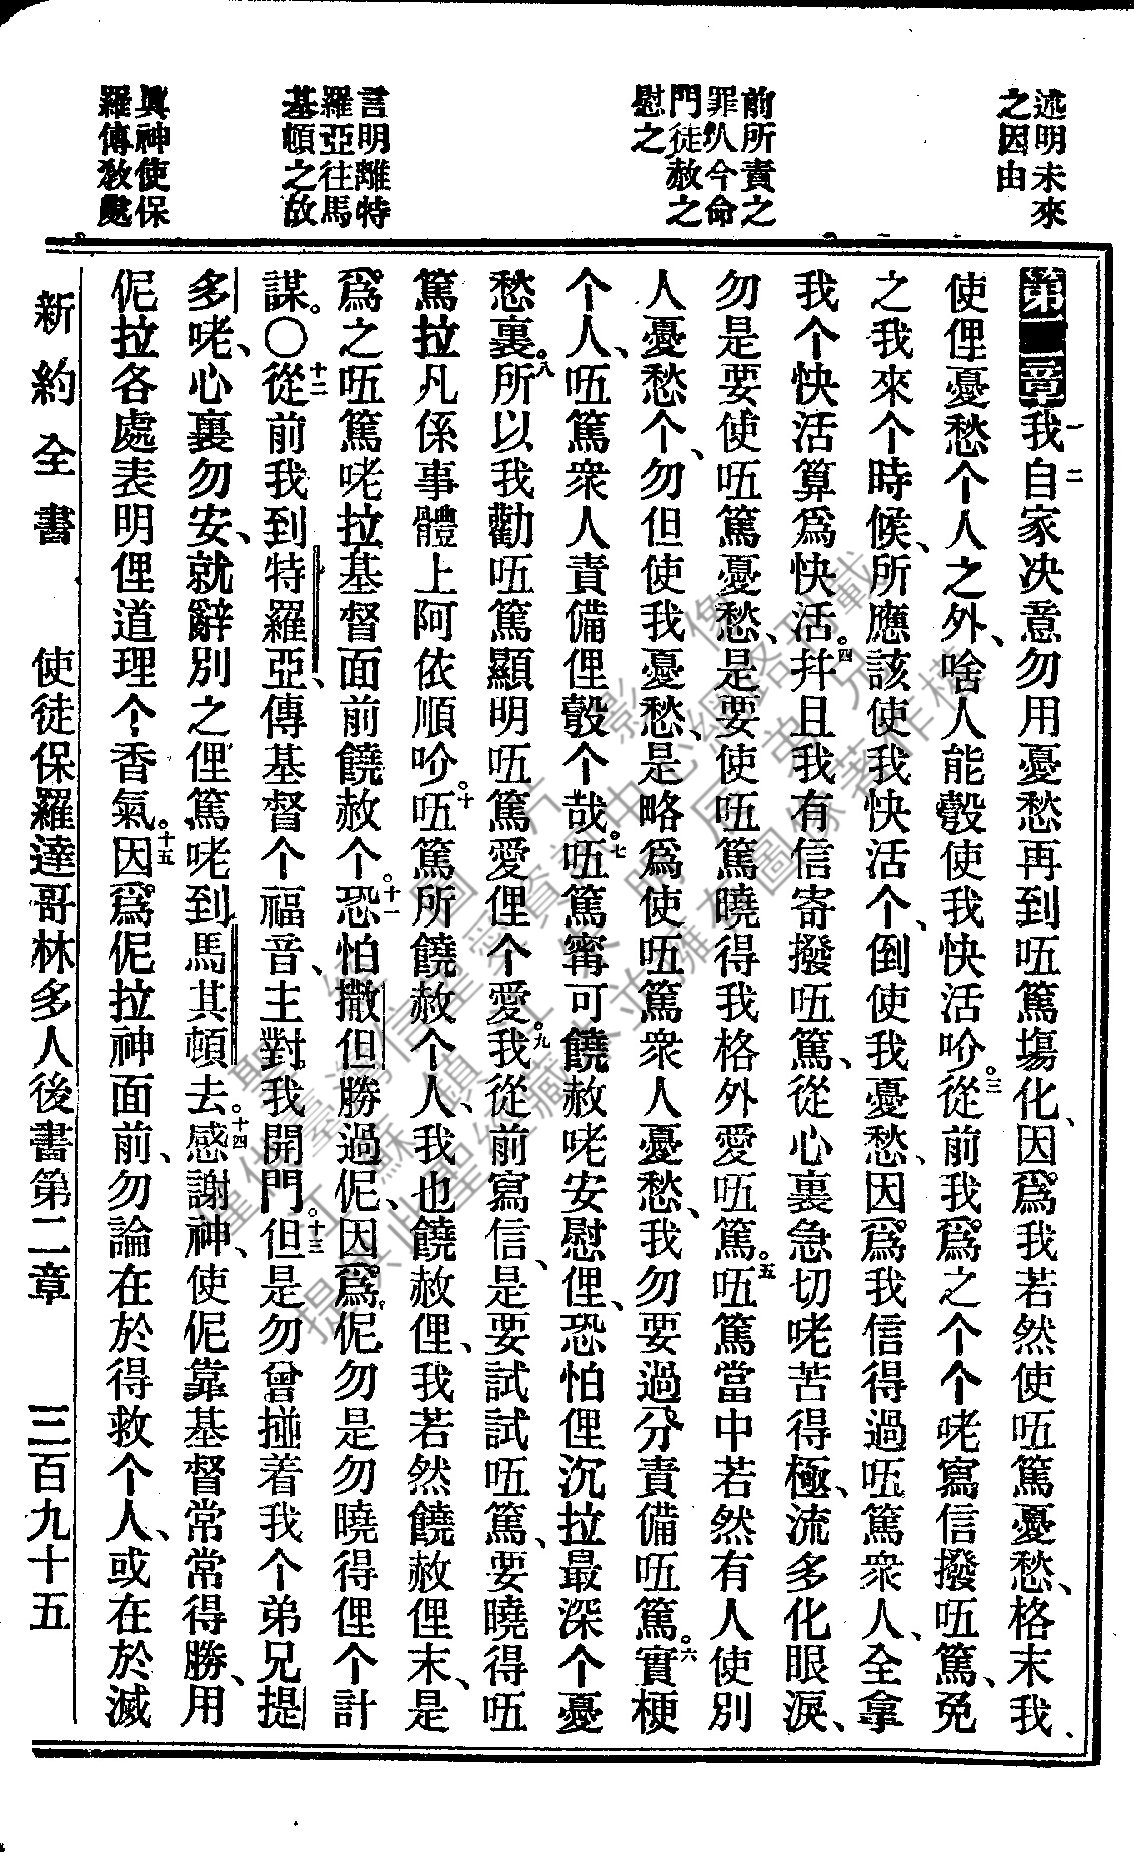 述明未來
之因由
前所責之
罪人今命
門徒赦之
慰之
言明離特
羅亞往馬
基頓之故
眞神使保
羅傳敎處
第二章一我二自家决意勿用憂愁再到㕶篤塲化、因爲我若然使㕶篤憂愁、格末我
使俚憂愁个人之外、啥人能彀使我快活吤。三從前我爲之个个咾寫信撥㕶篤、免
之我來个時候、所應該使我快活个、倒使我憂愁、因爲我信得過㕶篤衆人、全拿
我个快活算爲快活。四幷且我有信寄撥㕶篤、從心裏急切咾苦得極、流多化眼淚、
勿是要使㕶篤憂愁、是要使㕶篤曉得我格外愛㕶篤。五㕶篤當中若然有人使別
人憂愁个、勿但使我憂愁、是略爲使㕶篤衆人憂愁、我勿要過分責備㕶篤。六實梗
个人、㕶篤衆人責備俚彀个哉。七㕶篤寗可饒赦咾安慰俚、恐怕俚沉拉最深个憂
愁裏。八所以我勸㕶篤顯明㕶篤愛俚个愛。九我從前寫信、是要試試㕶篤、要曉得㕶
篤拉凡係事體上阿依順吤。十㕶篤所饒赦个人、我也饒赦俚、我若然饒赦俚末、是
爲之㕶篤咾拉基督面前饒赦个。十一恐怕撒但勝過伲、因爲伲勿是勿曉得俚个計
謀。〇十二從前我到特羅亞、傳基督个福音、主對我開門。十三但是勿曾掽着我个弟兄提
多咾、心裏勿安、就辭別之俚篤咾到馬其頓去。十四感謝神、使伲靠基督常常得勝、用
伲拉各處表明俚道理个香氣。十五因爲伲拉神面前、勿論在於得救个人、或在於滅
新約全書 使徒保羅達哥林多人後書第二章 三百九十五
聖經圖片影像
僅供臺灣信望愛資訊中心網路刊載
江蘇鎮江朱明辰弟兄
提供此聖經藏本並擁有圖像著作權